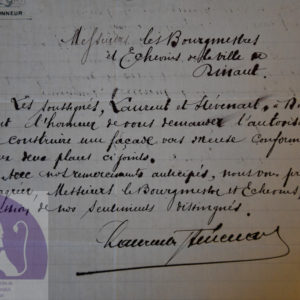 ONNEUR
Messieurs les Bourgmestres
et Echevins de la ville de
Dinant.
Les soussignés, Laurent et Thévenart, à D
nt l'honneur de vous demander l'autoris
construire une façade vers Meuse conform
deux plans ci joints.
Avec nos remerciements anticipés, nous vous pr
agréer Messieurs le Bourgmestre et Echevins,
ssion de nos sentiments distingués.
Laurent